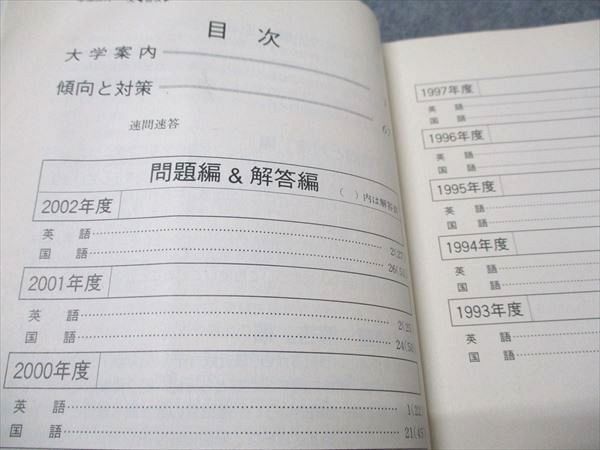 目次
大学案内
傾向と対策 6
速問速答
問題編 & 解答編 ( )内は解答
2002年度
英語 2(27)
国語 26(
2001年度
英語 2(25)
国語 24(50)
2000年度
英語 1(22)
国語 21(45)
1997年度
英語
国語
1996年度
英語
国語
1995年度
英語
国語
1994年度
英語
国語
1993年度
英語
国語